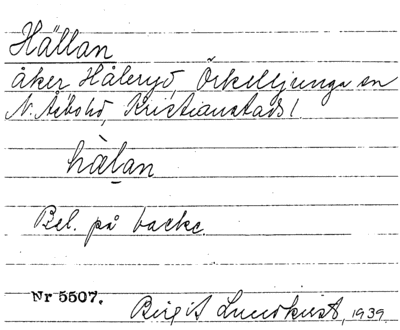 Hällan
åker Håleryd, Örkelljunga sn
N. Åsbohd, Kristianstads l
hälan
Bel. på backe.
Nr 5507.
Birgit Lundkvist, 1939